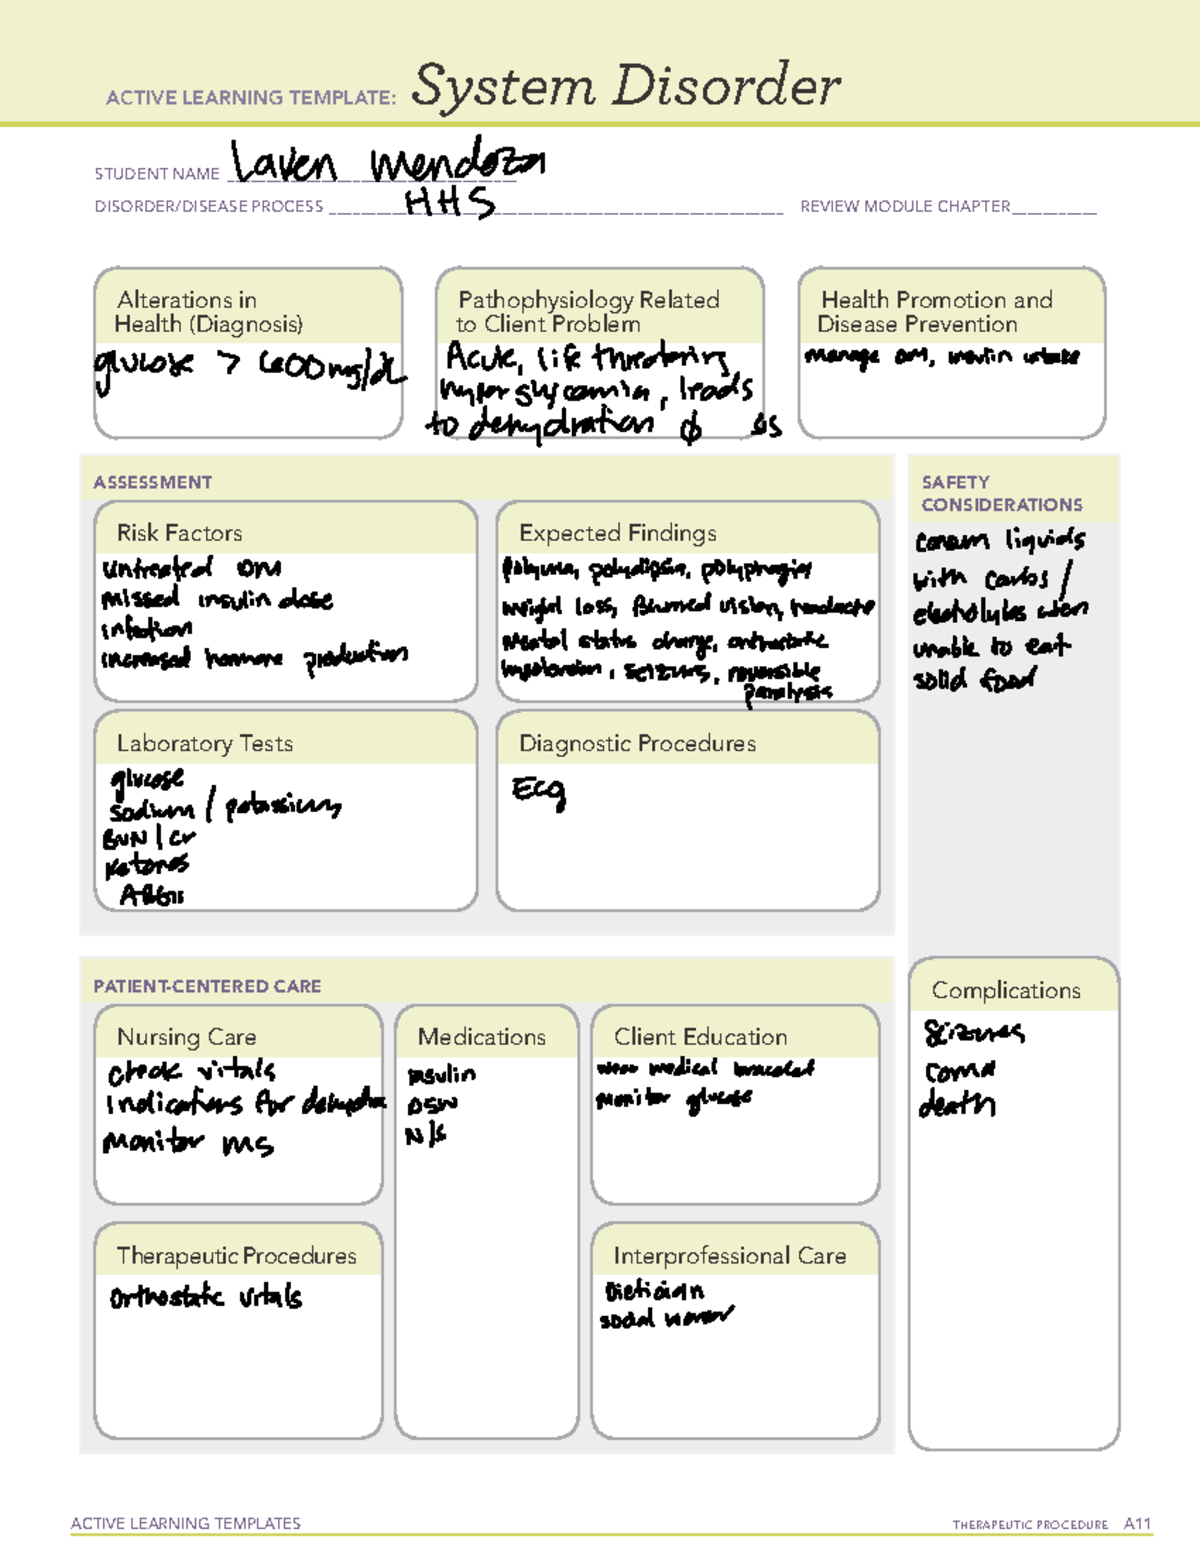 ACTIVE LEARNING TEMPLATE: System Disorder
STUDENT NAME Laven Mendoza
DISORDER/DISEASE PROCESS HHS
REVIEW MODULE CHAPTER
Alterations in
Health (Diagnosis)
glucose > 600mg/dL
Pathophysiology Related
to Client Problem
Acute, life threatening
hyperglycemia, leads
to dehydration
Health Promotion and
Disease Prevention
manage DM, insulin intake
ASSESSMENT
Risk Factors
untreated DM
missed insulin dose
infection
increased hormone production
Expected Findings
Polyuria, polydipsia, polyphagia
weight loss, Blurred vision, headache
mental status change, orthostatic
hypotension, seizures, reversible
paralysis
SAFETY
CONSIDERATIONS
consum liquids
with carbs /
electrolytes when
unable to eat
solid food
Laboratory Tests
glucose
sodium / potassium
BUN / Cr
Ketones
ABGs
Diagnostic Procedures
ECG
PATIENT-CENTERED CARE
Nursing Care
check vitals
Indications for
monitor MS
Medications
Insulin
D5W
N/S
Client Education
wear medical bracelet
monitor glucose
Complications
Seizures
coma
death
Therapeutic Procedures
orthostatic vitals
Interprofessional Care
Dietician
social worker
ACTIVE LEARNING TEMPLATES
THERAPEUTIC PROCEDURE A11